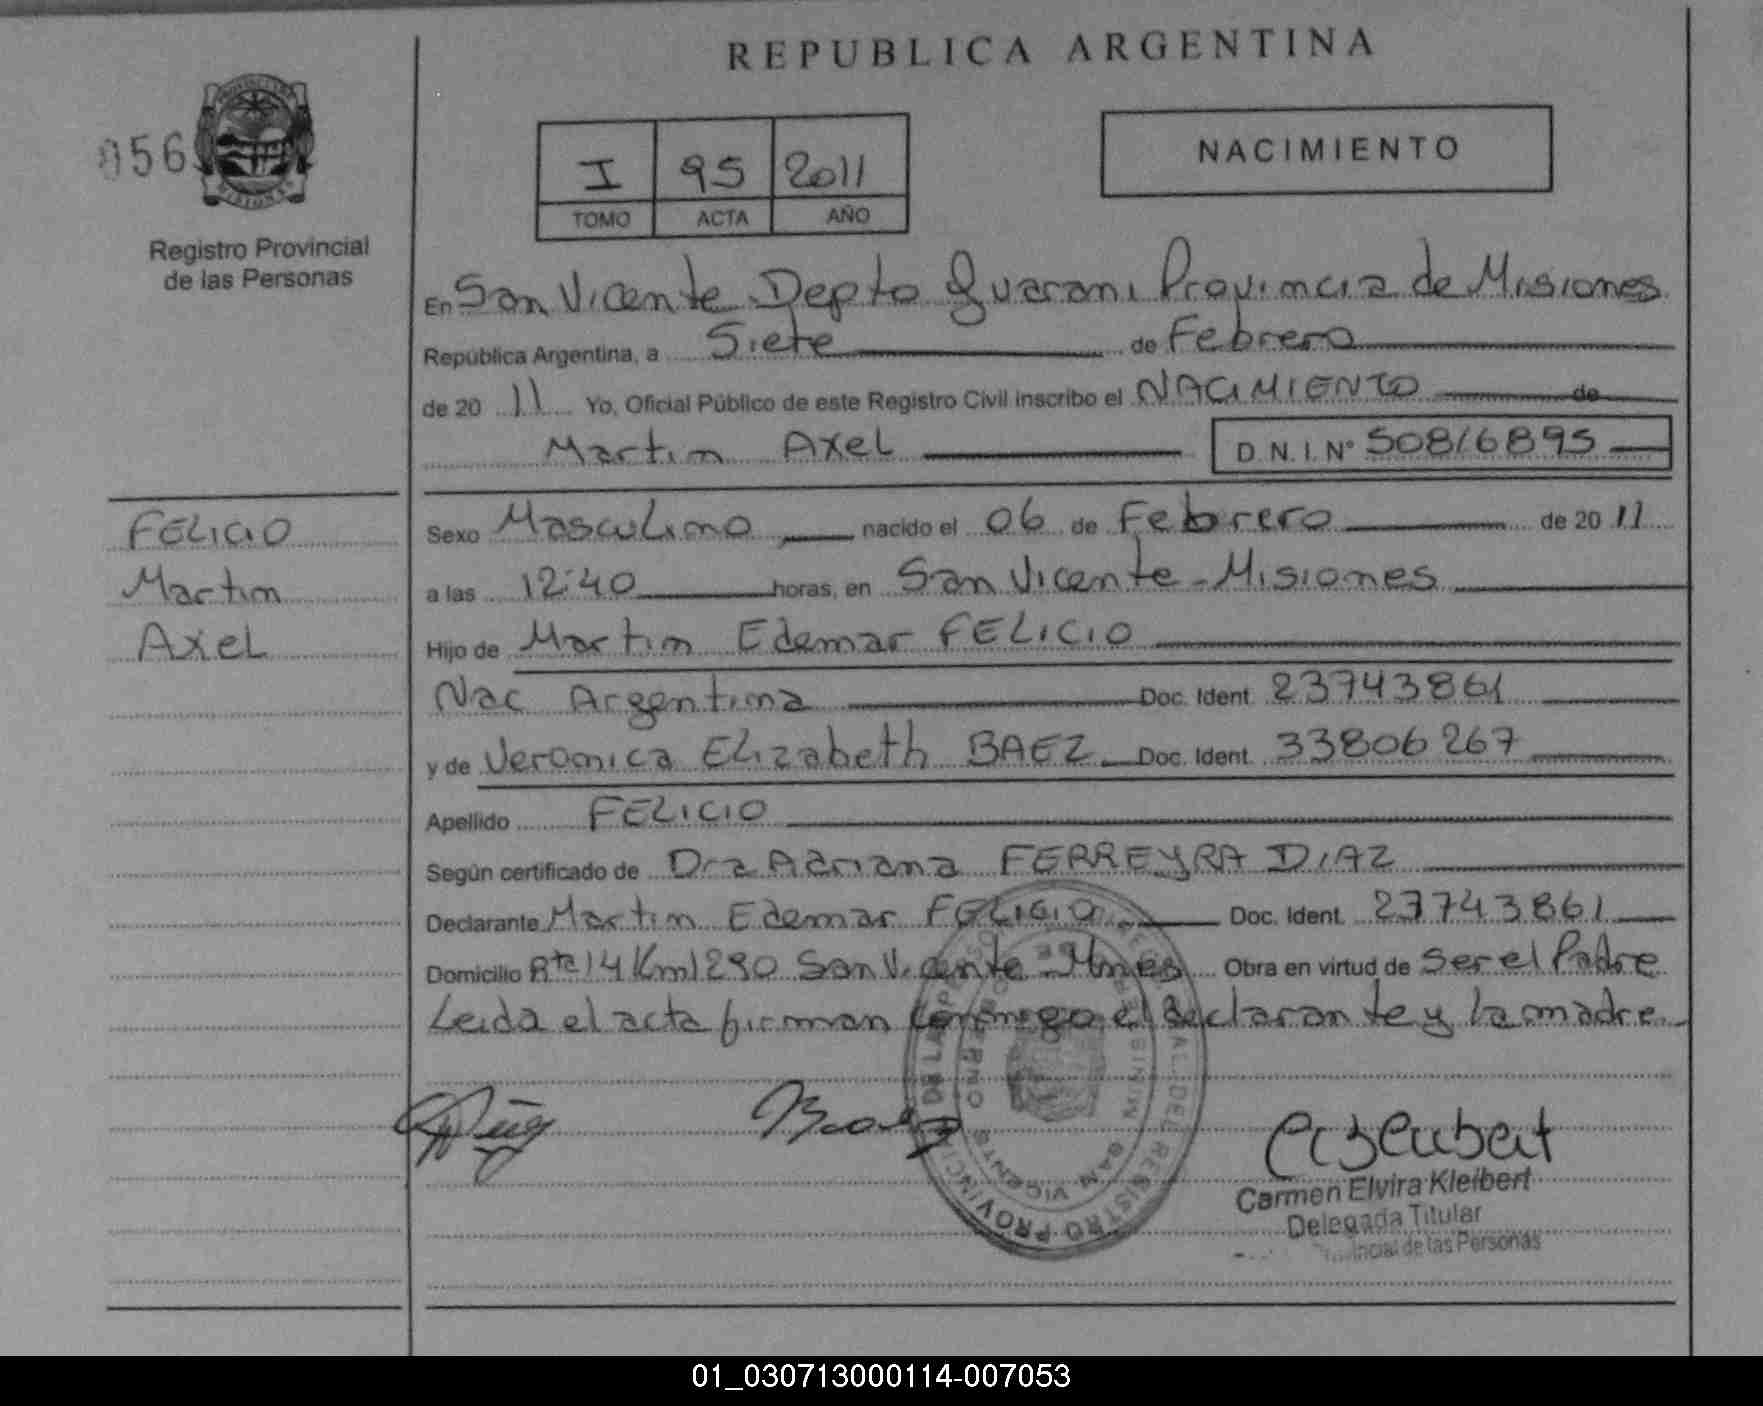 REPUBLICA ARGENTINA
056
I 95 2011
TOMO ACTA AÑO
NACIMIENTO
Registro Provincial
de las Personas
En San Vicente Depto Guarani Provincia de Misiones
República Argentina, a Siete de Febrero
de 20 11 Yo, Oficial Público de este Registro Civil inscribo el NACIMIENTO de
Martin Axel D.N.I.Nº 50816895
FELICIO
Martin
Axel
Sexo Masculino nacido el 06 de Febrero de 20 11
a las 12:40 horas, en San Vicente - Misiones
Hijo de Martin Edemar FELICIO
Nac Argentina Doc. Ident. 23743861
y de Veronica Elizabeth BAEZ Doc. Ident. 33806267
Apellido FELICIO
Según certificado de Dra Adriana FERREYRA DIAZ
Declarante Martin Edemar FELICIO Doc. Ident. 23743861
Domicilio Rta 14 Km 1290 San Vicente - Mnes Obra en virtud de Ser el Padre
Leida el acta firman conmigo el declarante y la madre
Carmen Elvira Kleibert
Delegada Titular
de las Personas
01_030713000114-007053